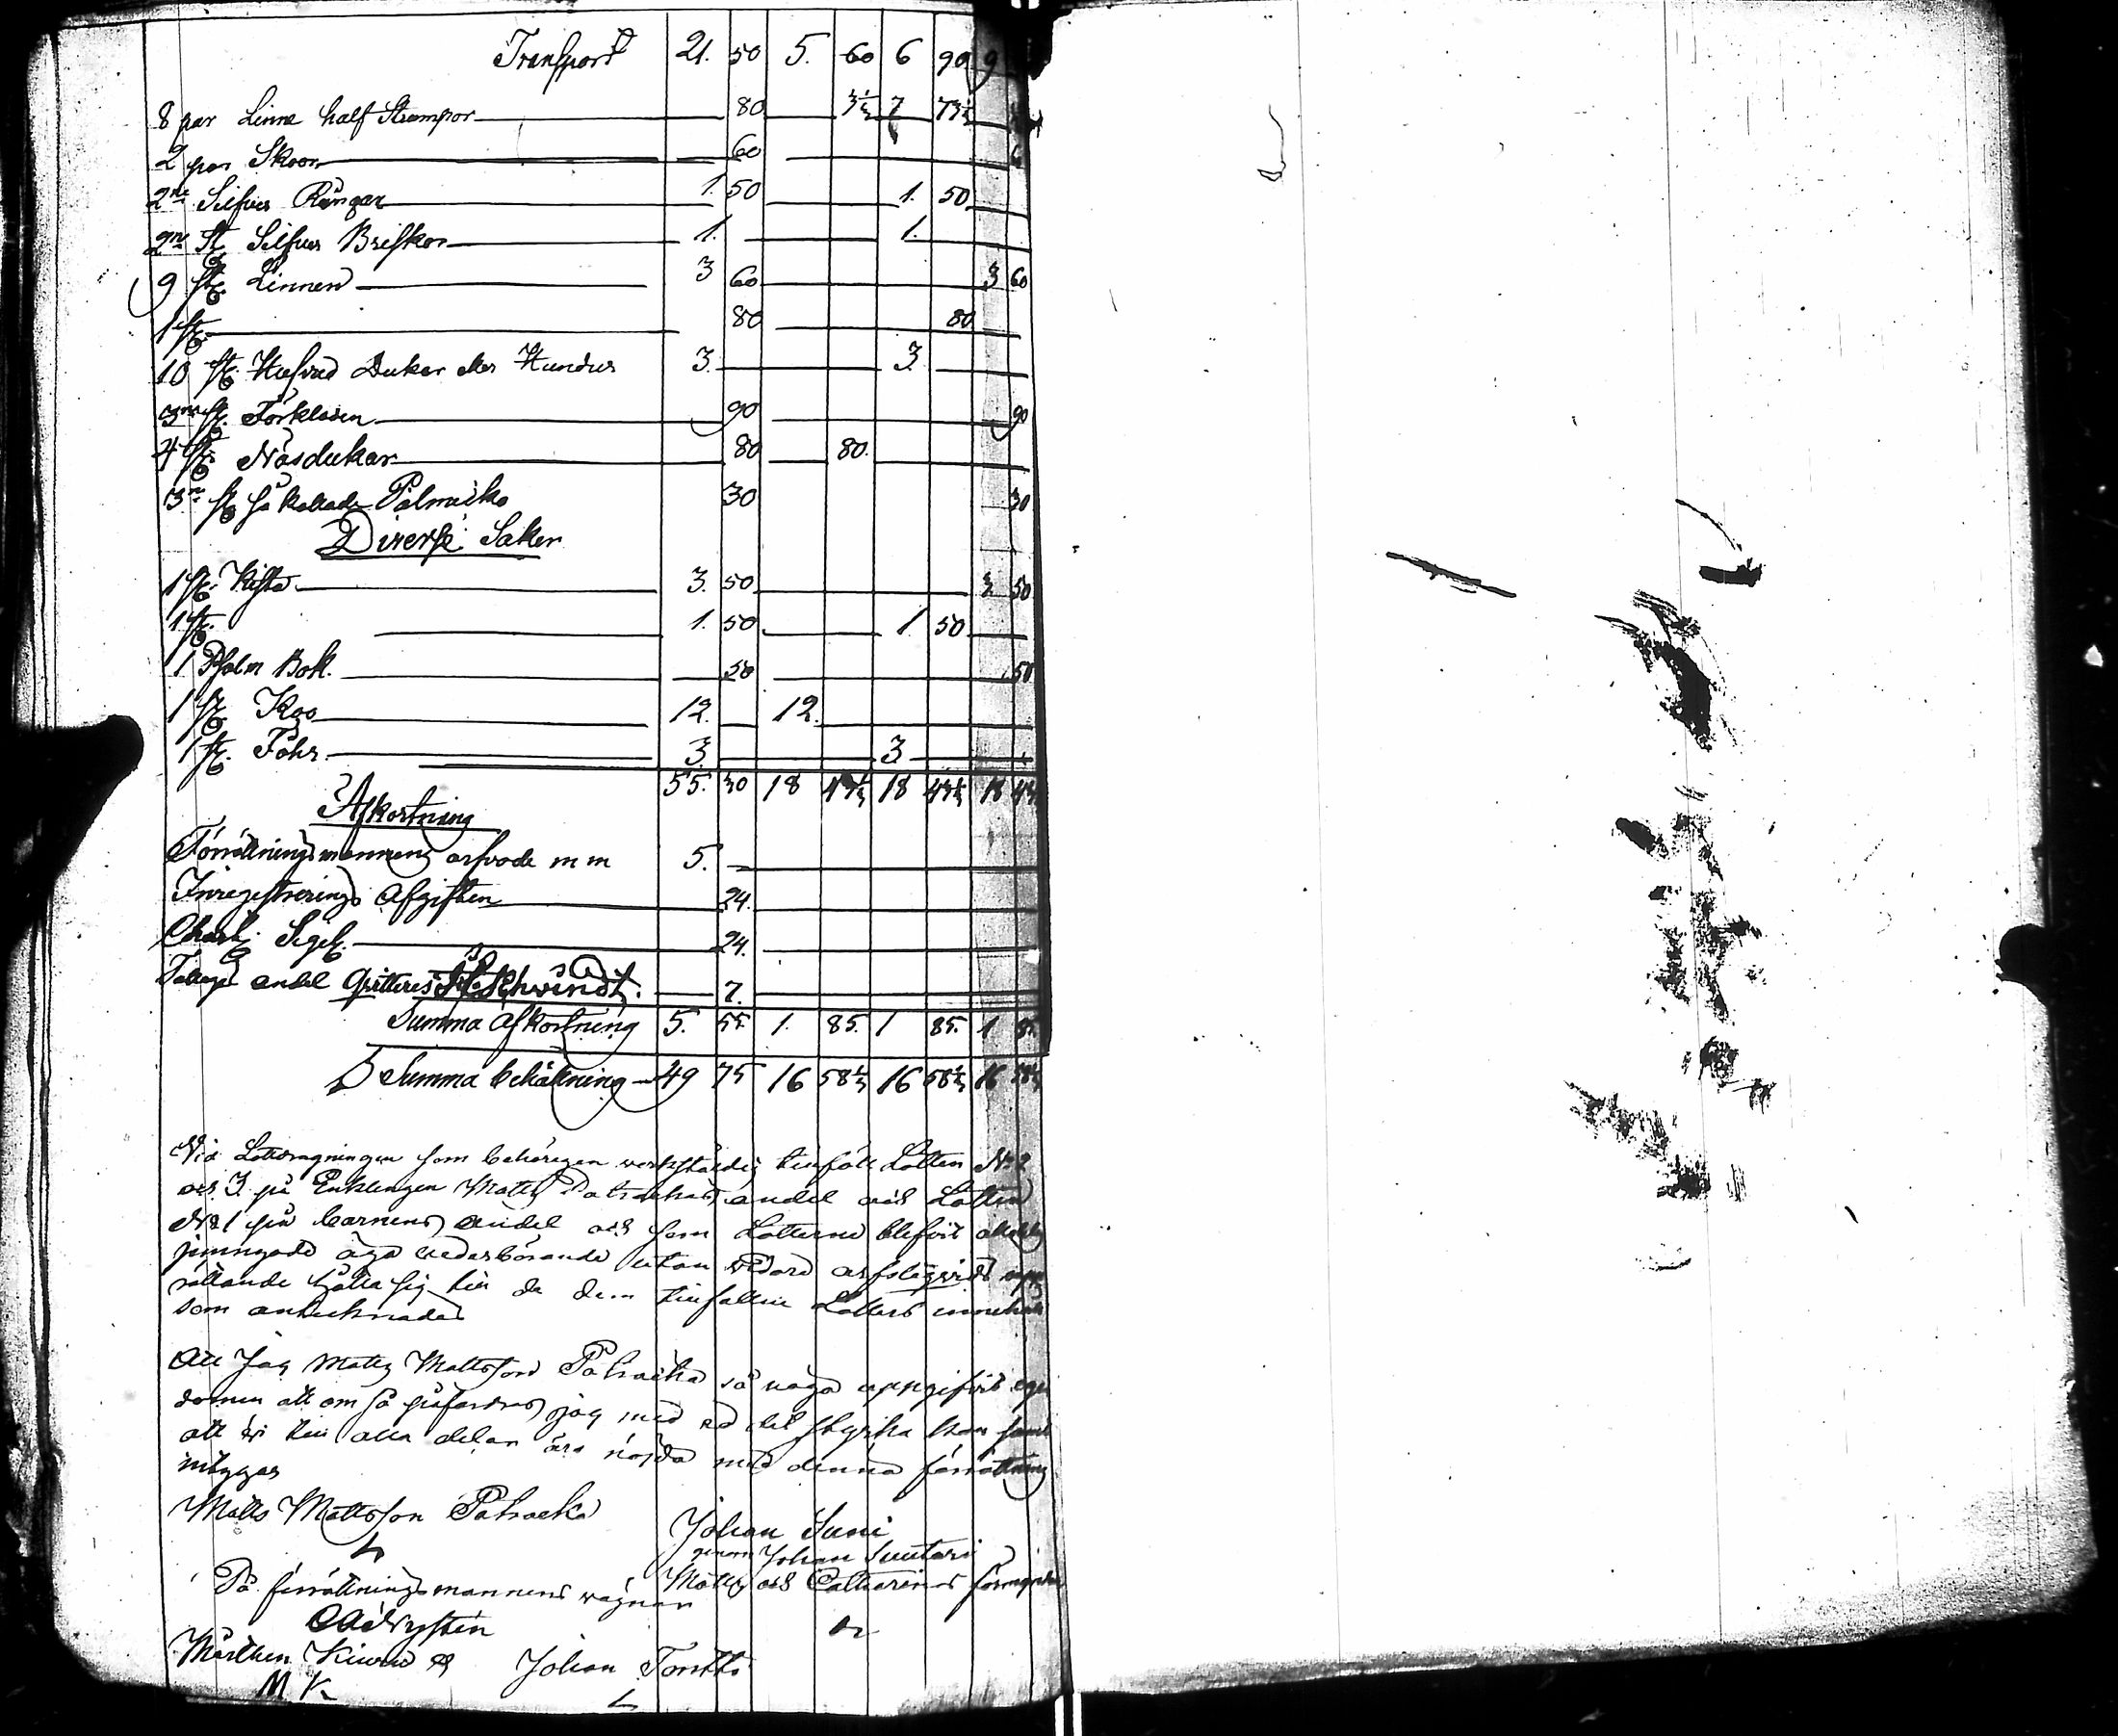 Transport 21. 50 5. 60 6 90 9
8 par Linne half Strumpor 80 3⅓ 7 73⅓
2 par Skoor 60
2ne Silfver Ringar 1. 50 1. 50
2ne St Silfver Briskor 1. 1.
9 st. Linnen 3 60 3 60
1 st. 80 80
10 st. Hufvud Dukar eller Hundus 3. 3.
3ne st. Förkläden 90 90
4 st. Näsdukar 80 80.
3ne st så kallade 30 30
Diverse Saker
1 st. Kista 3. 50 3 50
1 st. 1. 50 1. 50
1 Psalm Bok. 50 50
1 st Koo 12. 12.
1 st. Fåhr 3. 3.
55. 30 18 43⅓ 18 43⅓ 18 43
Afkortning
Förrättningsmannens arfvode m m 5.
Inregistrerings Afgiften 24.
Charte Sigill. 24.
andel Qvitteras Schwindt. 7.
Summa Afkortning 5. 55. 1. 85. 1 85. 1 85
Summa behållning 49 75 16 58⅓ 16 58⅓ 16 58⅓
Vid Lottdragningen som behörigen verkställdes tillföll Lotten No 2
och 3 på Enklingen Matts andel och Lotten
No 1 på barnens andel och som Lotterne blefvit
äga vederbörande utan vidare
hålla sig till de dem tillfallne Lotters innehåll
som antecknades
Att Jag Matts Mattsson så noga uppgifvit egen
domen att om så påfordras jag med ed det styrka kan samt
att vi till alla delar äro nöjda med denna förrättning
intygas
Matts Mattsson
Johan Suni
genom Johan Suutari
Matts och Catharinas förmyndare
På förrättningsmannens vägnar
Mårthen Johan
M K